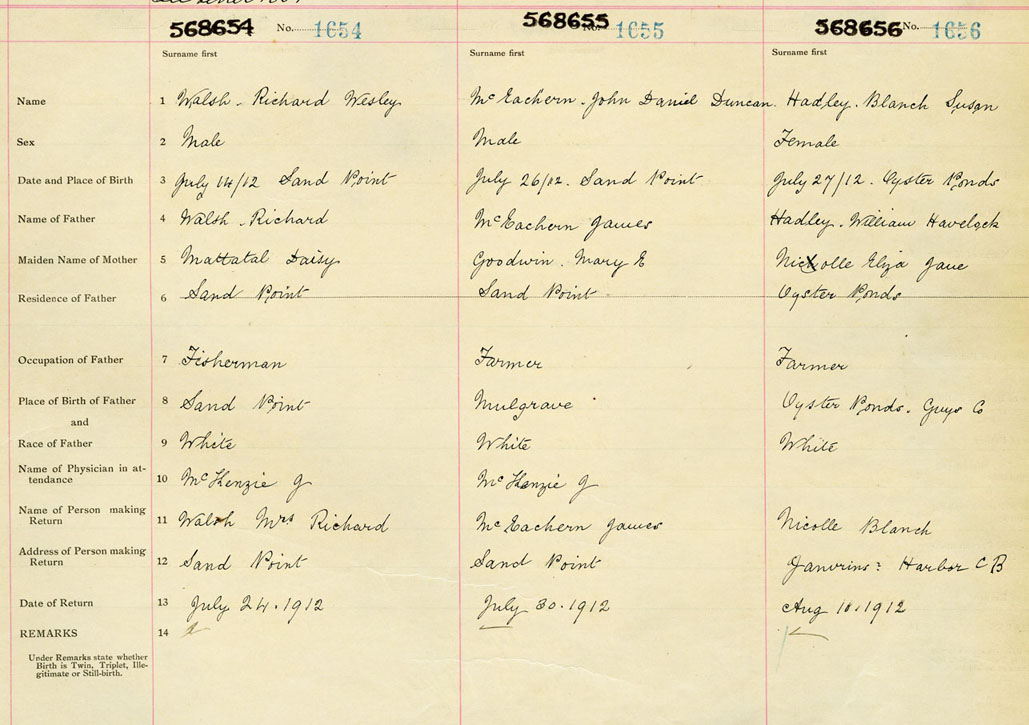 568654 No. 1654 568655 No. 1655 568656 No. 1656
Surname first Surname first Surname first
Name 1 Walsh. Richard Wesley McEachern. John Daniel Duncan. Hadley. Blanch Susan
Sex 2 Male Male Female
Date and Place of Birth 3 July 14/12 Sand Point July 26/12. Sand Point July 27/12. Oyster Ponds
Name of Father 4 Walsh. Richard McEachern James Hadley. William Havelock
Maiden Name of Mother 5 Mattatal Daisy Goodwin. Mary E Nicholle Eliza Jane
Residence of Father 6 Sand Point Sand Point Oyster Ponds
Occupation of Father 7 Fisherman Farmer Farmer
Place of Birth of Father 8 Sand Point Mulgrave Oyster Ponds. Guys Co
and
Race of Father 9 White White White
Name of Physician in at-
tendance 10 McKenzie J McKenzie J
Name of Person making
Return 11 Walsh Mrs Richard McEachern James Nicolle Blanch
Address of Person making
Return 12 Sand Point Sand Point Janvrins Harbor C B
Date of Return 13 July 24. 1912 July 30. 1912 Aug 1912
REMARKS 14
Under Remarks state whether
Birth is Twin, Triplet, Ille-
gitimate or Still-birth.